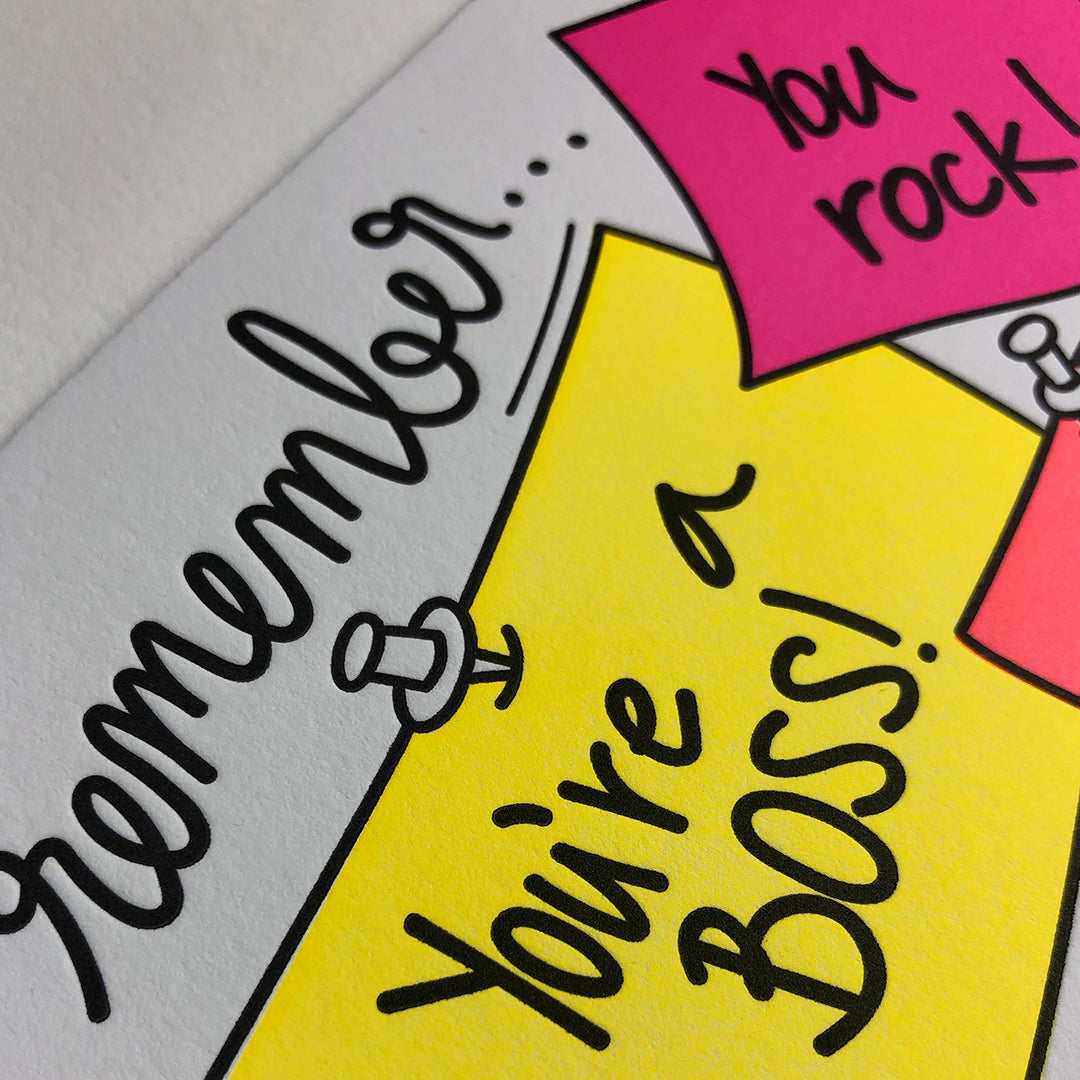 remember...
You
rock!
You're a
BOSS!